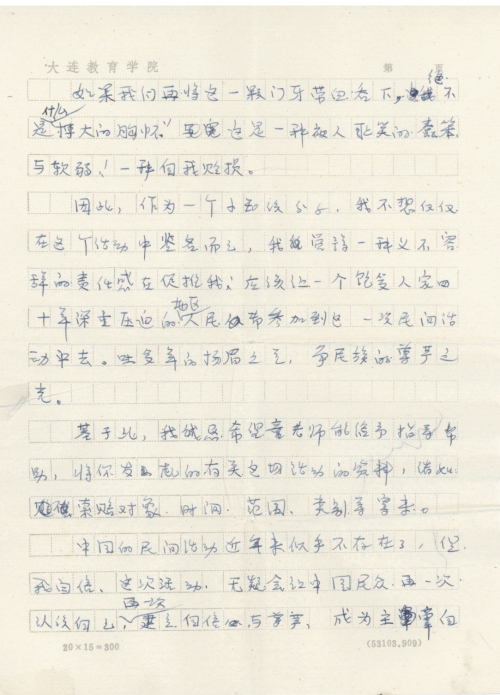 大连教育学院 第 页
如果我们再将这一颗门牙带血吞下,绝不
是什么博大的胸怀!这是一种被人耻笑的蠢笨
与软弱!一种自我贬损。
因此,作为一个知识分子,我不想仅仅
在这个活动中签名而已,我觉得一种义不容
辞的责任感在促推我:应该让一个饱受人家四
十年深重压迫的地区人民参加到这一次民间活
动中去。吐多年的扬眉之气,争民族的尊严之
光。
基于此,我诚恳希望童老师能给予指导帮
助,将你发起的有关这场活动的资料,诸如
索赔对象、时间、范围、类别等寄来。
中国的民间活动近年来似乎不存在了,但
我自信,这次活动,无疑会让中国民众再一次
认识自己,再一次建立自信心与尊严,成为主宰自
20×15=300 (53103.909)